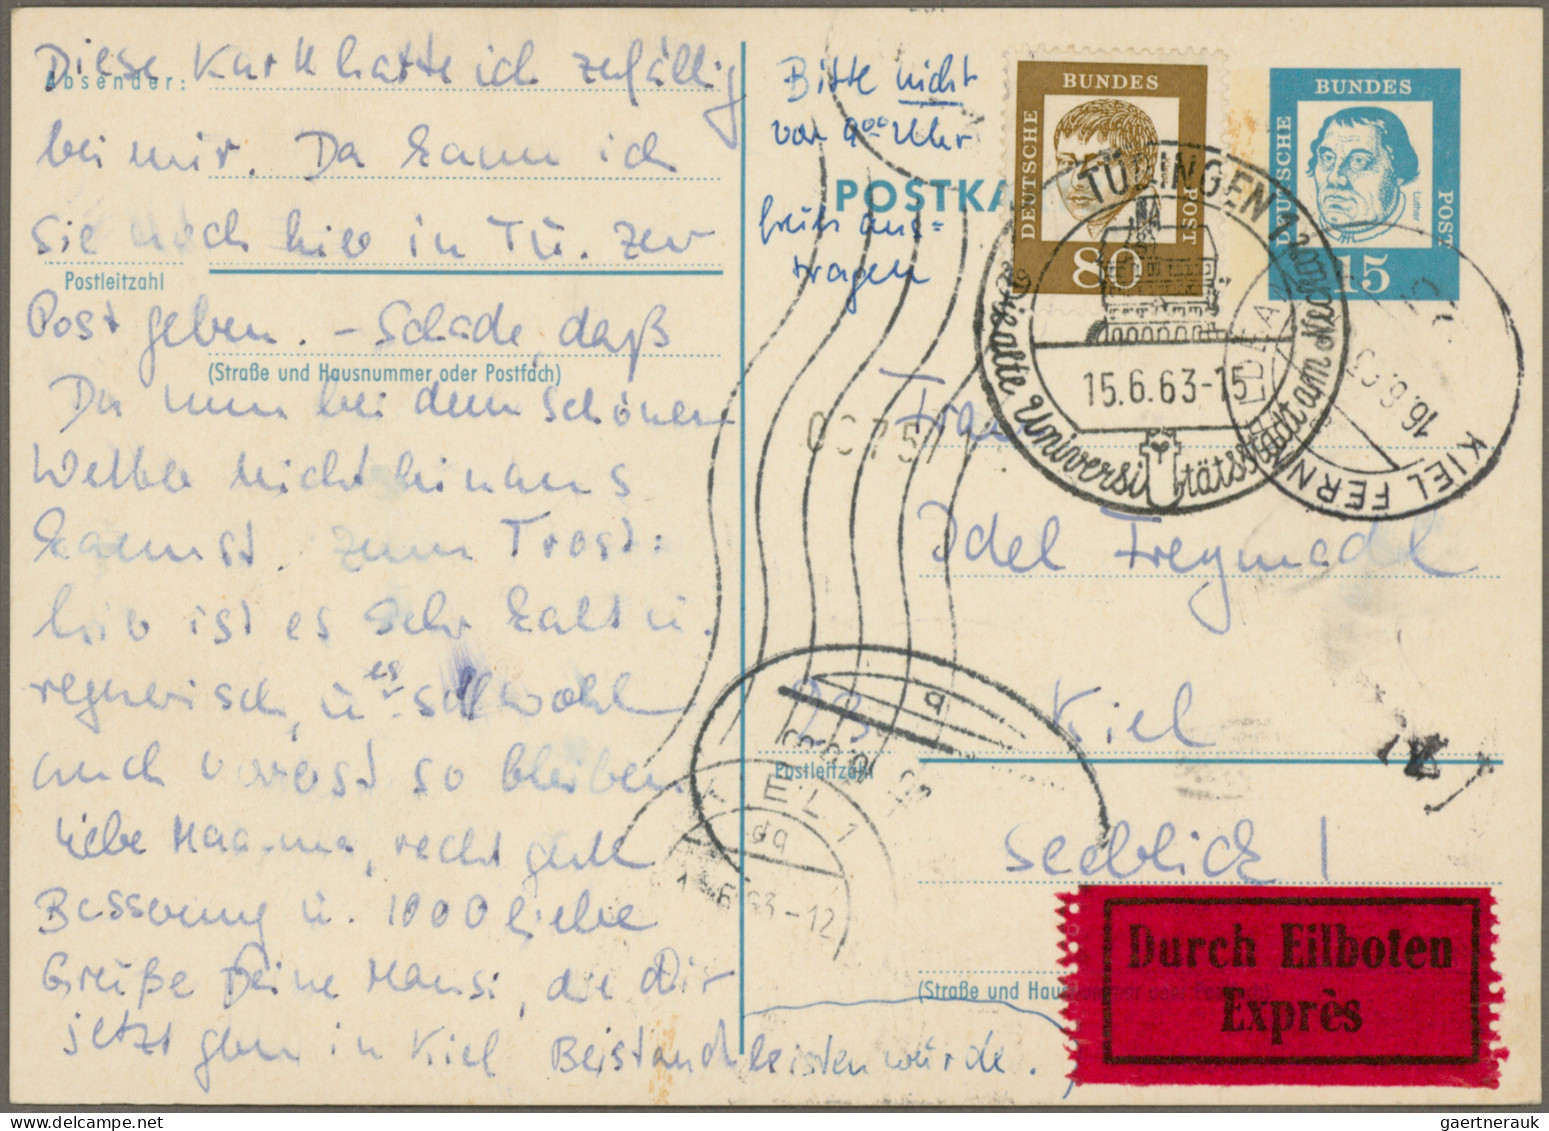 Diese Karte hatte ich zufällig
Absender:
bei mir. Da kann ich
Sie noch hier in Tü. zur
Postleitzahl
Post geben. – Schade, daß
(Straße und Hausnummer oder Postfach)
Du nun bei dem schönen
Wetter nicht hinaus
kannst. Zum Trost:
hier ist es sehr kalt u.
regnerisch, u. es soll wohl
auch vorerst so bleiben.
Liebe Maa-ma, recht gute
Besserung u. 1000 liebe
Grüße Deine Mausi, die Dir
jetzt gern in Kiel Beistand leisten würde.
Bitte nicht
vor 9⁰⁰ Uhr
früh aus=
tragen
POSTKA
BUNDES
DEUTSCHE
POST
80
BUNDES
DEUTSCHE
POST
Luther
15
TÜBINGEN 1
Die alte Universitätsstadt am Neckar
15.6.63-15
KIEL FERN
16.6.63
Frau
Idel
23 Kiel
Postleitzahl
Seeblick 1
(Straße und Hausnummer oder Postfach)
KIEL 1
dq
6.63-12
q
Durch Eilboten
Exprès
gaertnerauk